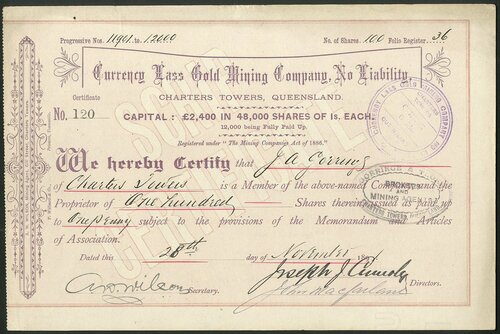 Progressive Nos. 11901 to 12000 No. of Shares 100 Folio Register 36
Currency Lass Gold Mining Company, No Liability,
CHARTERS TOWERS, QUEENSLAND.
Certificate
No. 120
CAPITAL : £2,400 IN 48,000 SHARES OF 1s. EACH.
12,000 being Fully Paid Up.
Registered under "The Mining Companies Act of 1886."
We hereby Certify that J A
of Charters Towers is a Member of the above-named Company and the
Proprietor of One Hundred Shares therein issued as paid up
to One penny subject to the provisions of the Memorandum and Articles
of Association.
Dated this 28th day of November 189
Wilson Secretary.
Joseph J
John Macfarlane Directors.
Currency Lass Gold Mining Company
BROKERS
AND
MINING AGENTS
CHARTERS TOWERS